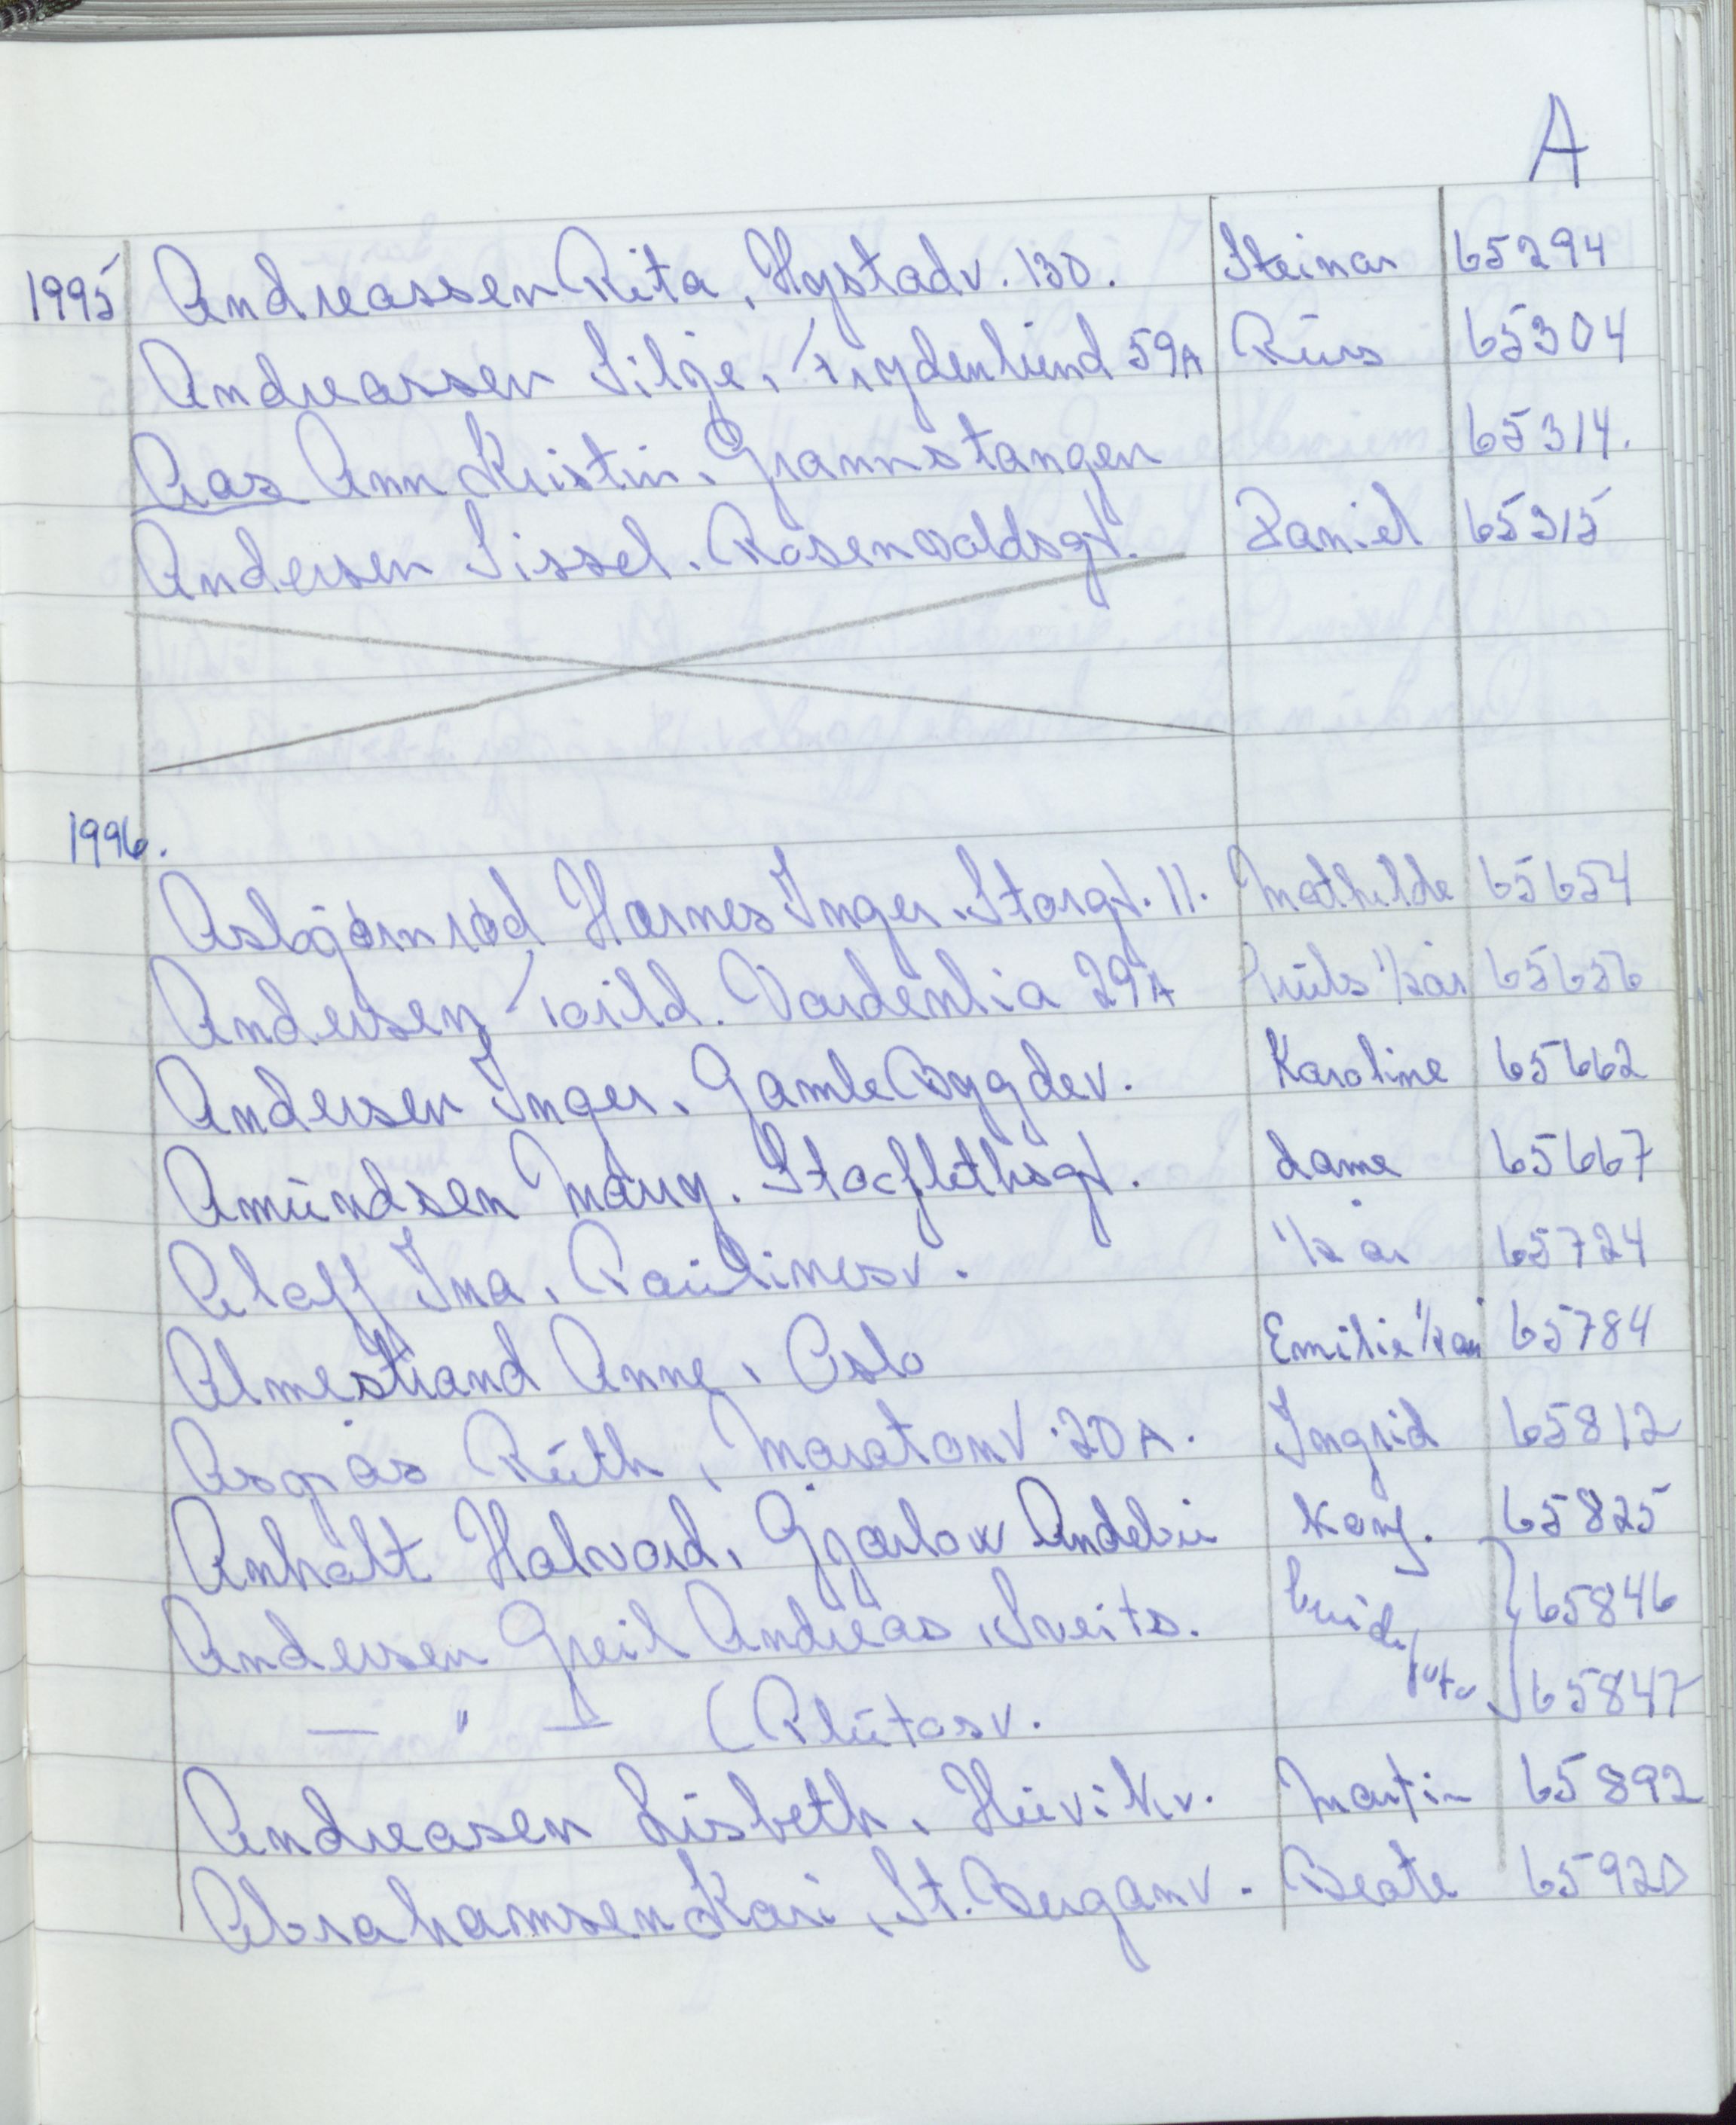 A
1995 Andreassen Rita, Hystadv. 130. Steinar 65294
Andreassen Silje, Frydenlund 59A 65304
Aas Ann Kristin, Grannstangen 65314.
Andersen Sissel. Rosenvoldsgt. Daniel 65315
1996.
Asbjørnrød Harnes Inger. Storgt. 11. Mathilde 65654
Andersen Torild. Vardenlia 29A 1/2 år 65656
Andersen Inger. Gamle Bygdev. Karoline 65662
Amundsen Mary. Stockflethsgt. dame 65667
Aloff Ina, Paulinesv. 1/2 år 65724
Almestrand Anne, Oslo Emilie 1/2 år 65784
Asgras Ruth, Maratonv. 20A. Ingrid 65812
Anholt Halvard, Gjarlow Andebu Konf. 65825
Andersen Greil Andreas, Sveits. 65846
— " — (Plutosv. 65847
Andreasen Lisbeth, Huvikv. Martin 65892
Abrahamsen Kari, St. Berganv. Beate 65920